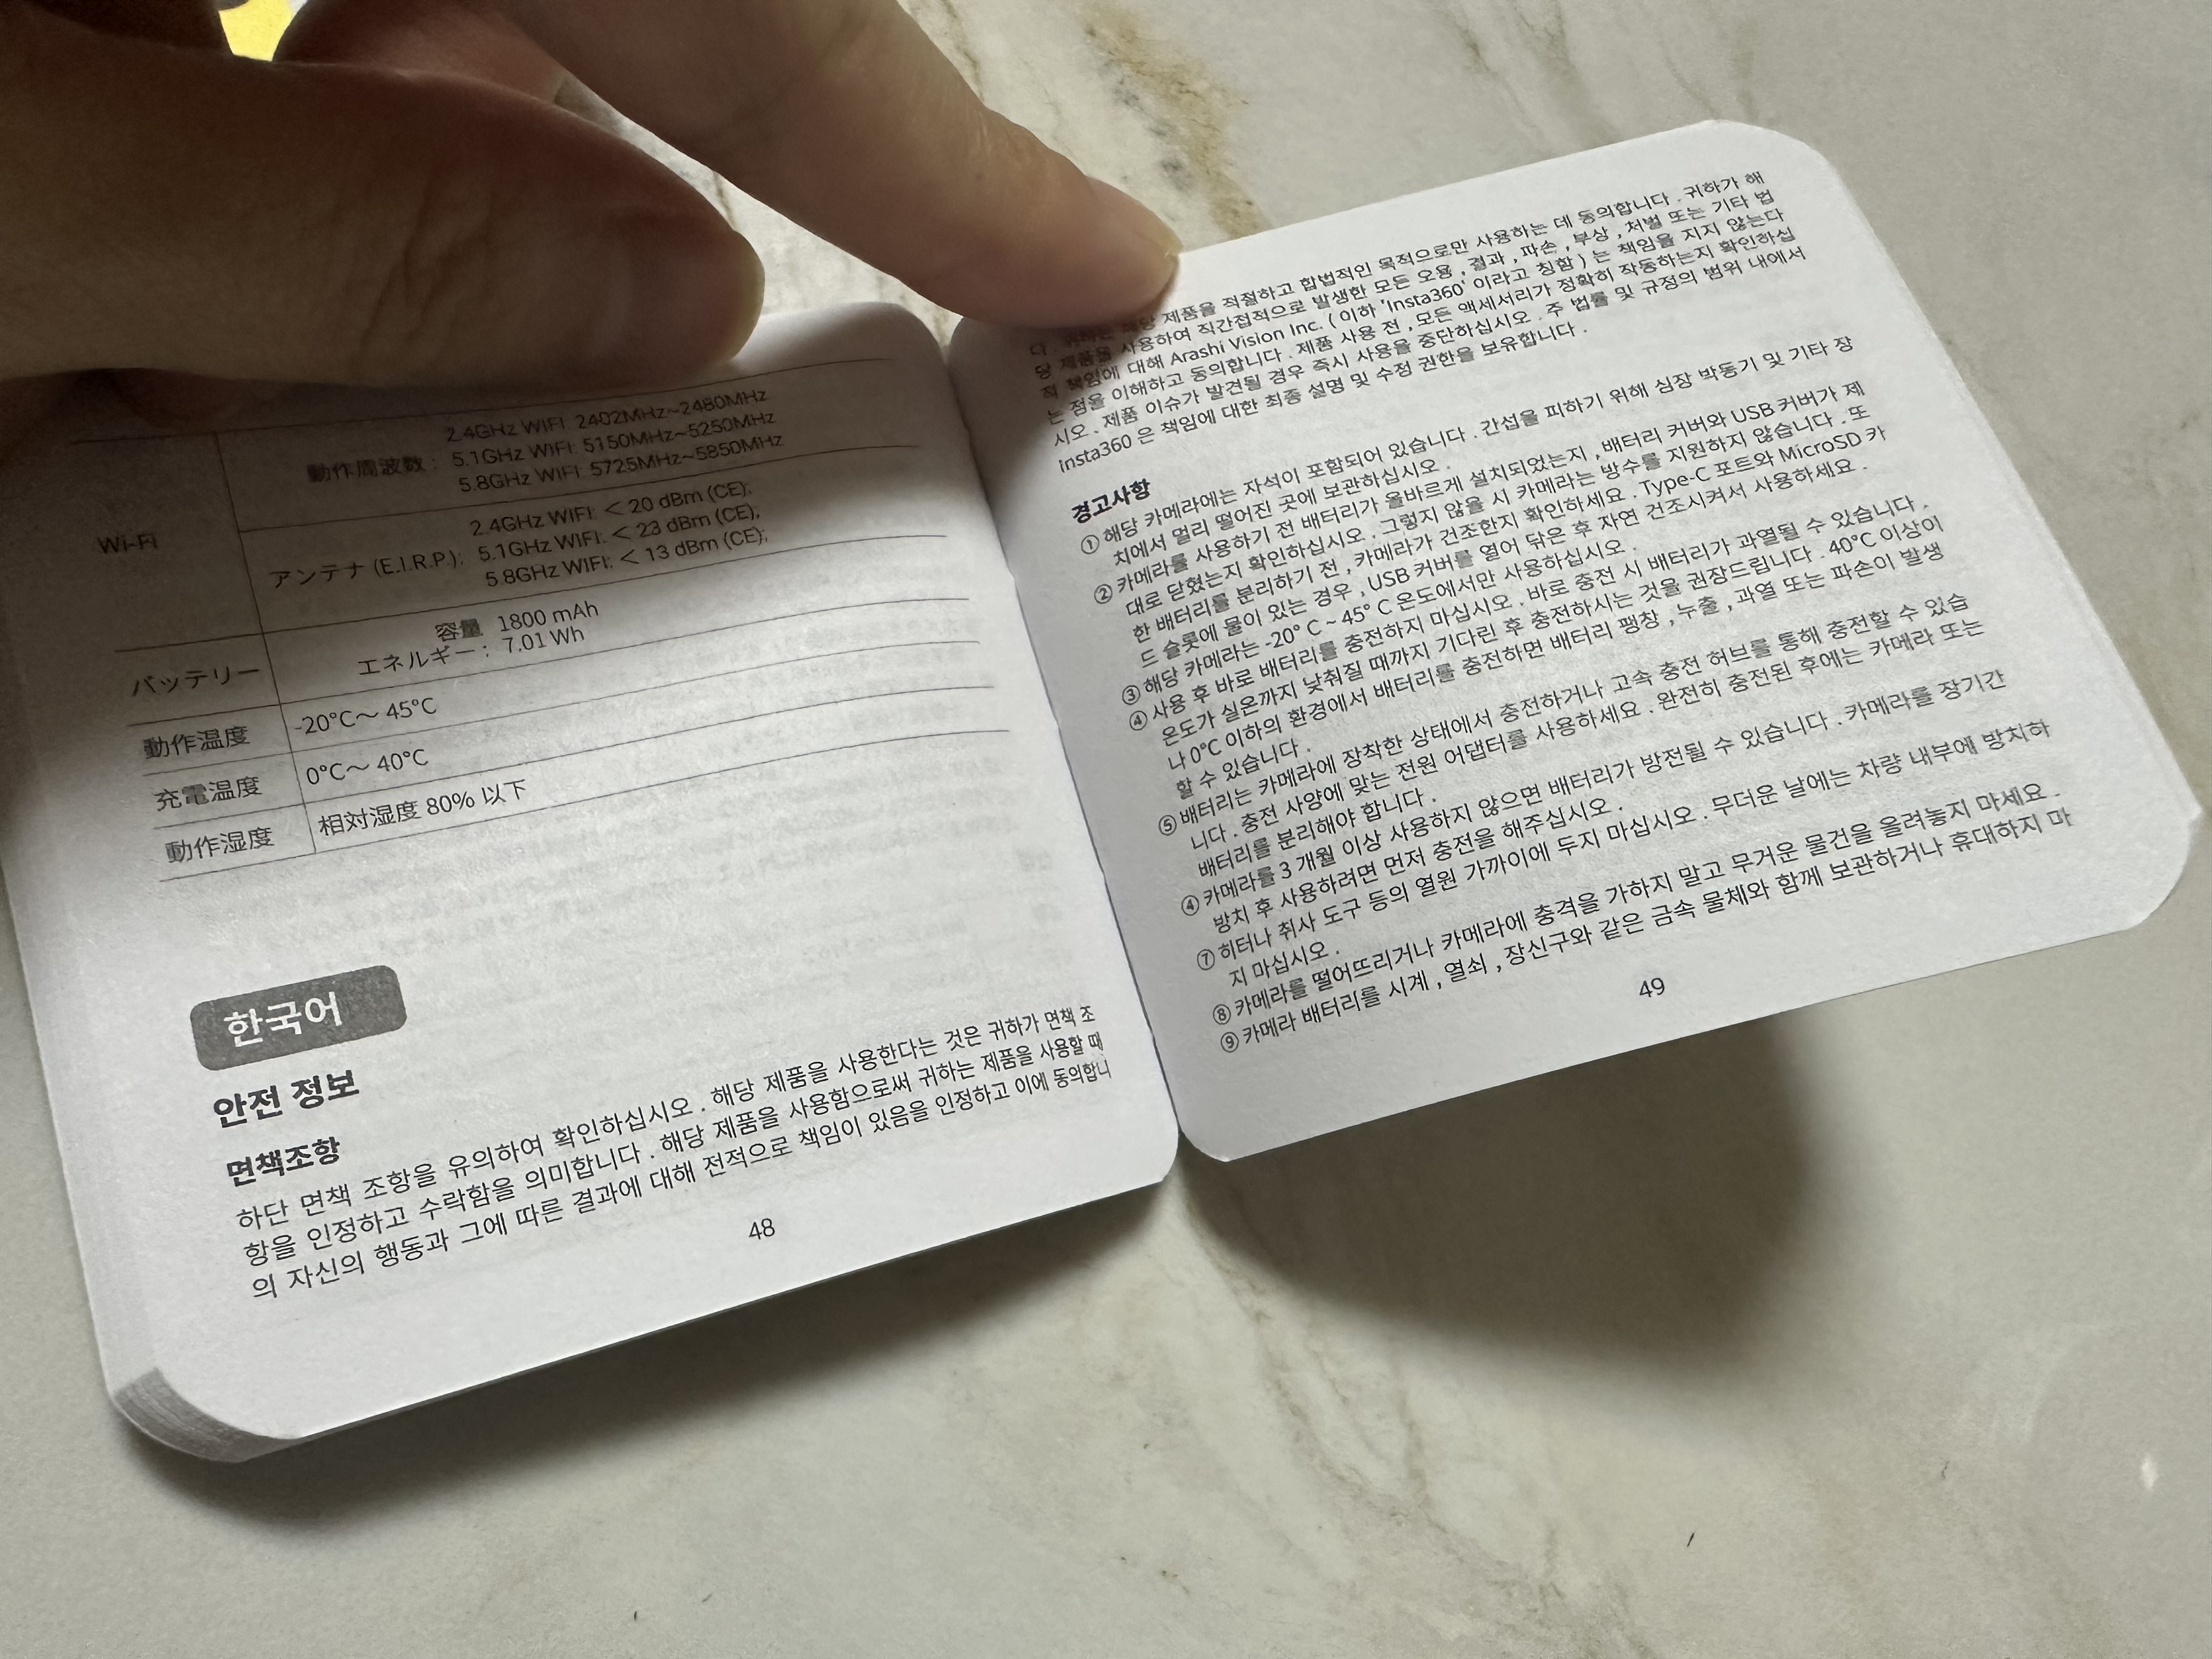 Wi-Fi
動作周波数 :
2.4GHz WIFI: 2402MHz~2480MHz
5.1GHz WIFI: 5150MHz~5250MHz
5.8GHz WIFI: 5725MHz~5850MHz
アンテナ (E.I.R.P.):
2.4GHz WIFI: < 20 dBm (CE);
5.1GHz WIFI: < 23 dBm (CE);
5.8GHz WIFI: < 13 dBm (CE);
バッテリー
容量 1800 mAh
エネルギー : 7.01 Wh
動作温度 -20°C～ 45°C
充電温度 0°C～ 40°C
動作湿度 相対湿度 80% 以下
한국어
안전 정보
면책조항
하단 면책 조항을 유의하여 확인하십시오 . 해당 제품을 사용한다는 것은 귀하가 면책 조
항을 인정하고 수락함을 의미합니다 . 해당 제품을 사용함으로써 귀하는 제품을 사용할 때
의 자신의 행동과 그에 따른 결과에 대해 전적으로 책임이 있음을 인정하고 이에 동의합니
48
다 . 해당 제품을 적절하고 합법적인 목적으로만 사용하는 데 동의합니다 . 귀하가 해
당 제품을 사용하여 직간접적으로 발생한 모든 오용 , 결과 , 파손 , 부상 , 처벌 또는 기타 법
적 책임에 대해 Arashi Vision Inc. ( 이하 'Insta360' 이라고 칭함 ) 는 책임을 지지 않는다
는 점을 이해하고 동의합니다 . 제품 사용 전 , 모든 액세서리가 정확히 작동하는지 확인하십
시오 . 제품 이슈가 발견될 경우 즉시 사용을 중단하십시오 . 주 법률 및 규정의 범위 내에서
Insta360 은 책임에 대한 최종 설명 및 수정 권한을 보유합니다 .
경고사항
① 해당 카메라에는 자석이 포함되어 있습니다 . 간섭을 피하기 위해 심장 박동기 및 기타 장
치에서 멀리 떨어진 곳에 보관하십시오 .
② 카메라를 사용하기 전 배터리가 올바르게 설치되었는지 , 배터리 커버와 USB 커버가 제
대로 닫혔는지 확인하십시오 . 그렇지 않을 시 카메라는 방수를 지원하지 않습니다 . 또
한 배터리를 분리하기 전 , 카메라가 건조한지 확인하세요 . Type-C 포트와 MicroSD 카
드 슬롯에 물이 있는 경우 , USB 커버를 열어 닦은 후 자연 건조시켜서 사용하세요 .
③ 해당 카메라는 -20° C ~ 45° C 온도에서만 사용하십시오 .
④ 사용 후 바로 배터리를 충전하지 마십시오 . 바로 충전 시 배터리가 과열될 수 있습니다 .
온도가 실온까지 낮춰질 때까지 기다린 후 충전하시는 것을 권장드립니다 . 40°C 이상이
나 0°C 이하의 환경에서 배터리를 충전하면 배터리 팽창 , 누출 , 과열 또는 파손이 발생
할 수 있습니다 .
⑤ 배터리는 카메라에 장착한 상태에서 충전하거나 고속 충전 허브를 통해 충전할 수 있습
니다 . 충전 사양에 맞는 전원 어댑터를 사용하세요 . 완전히 충전된 후에는 카메라 또는
배터리를 분리해야 합니다 .
④ 카메라를 3 개월 이상 사용하지 않으면 배터리가 방전될 수 있습니다 . 카메라를 장기간
방치 후 사용하려면 먼저 충전을 해주십시오 .
⑦ 히터나 취사 도구 등의 열원 가까이에 두지 마십시오 . 무더운 날에는 차량 내부에 방치하
지 마십시오 .
⑧ 카메라를 떨어뜨리거나 카메라에 충격을 가하지 말고 무거운 물건을 올려놓지 마세요 .
⑨ 카메라 배터리를 시계 , 열쇠 , 장신구와 같은 금속 물체와 함께 보관하거나 휴대하지 마
49